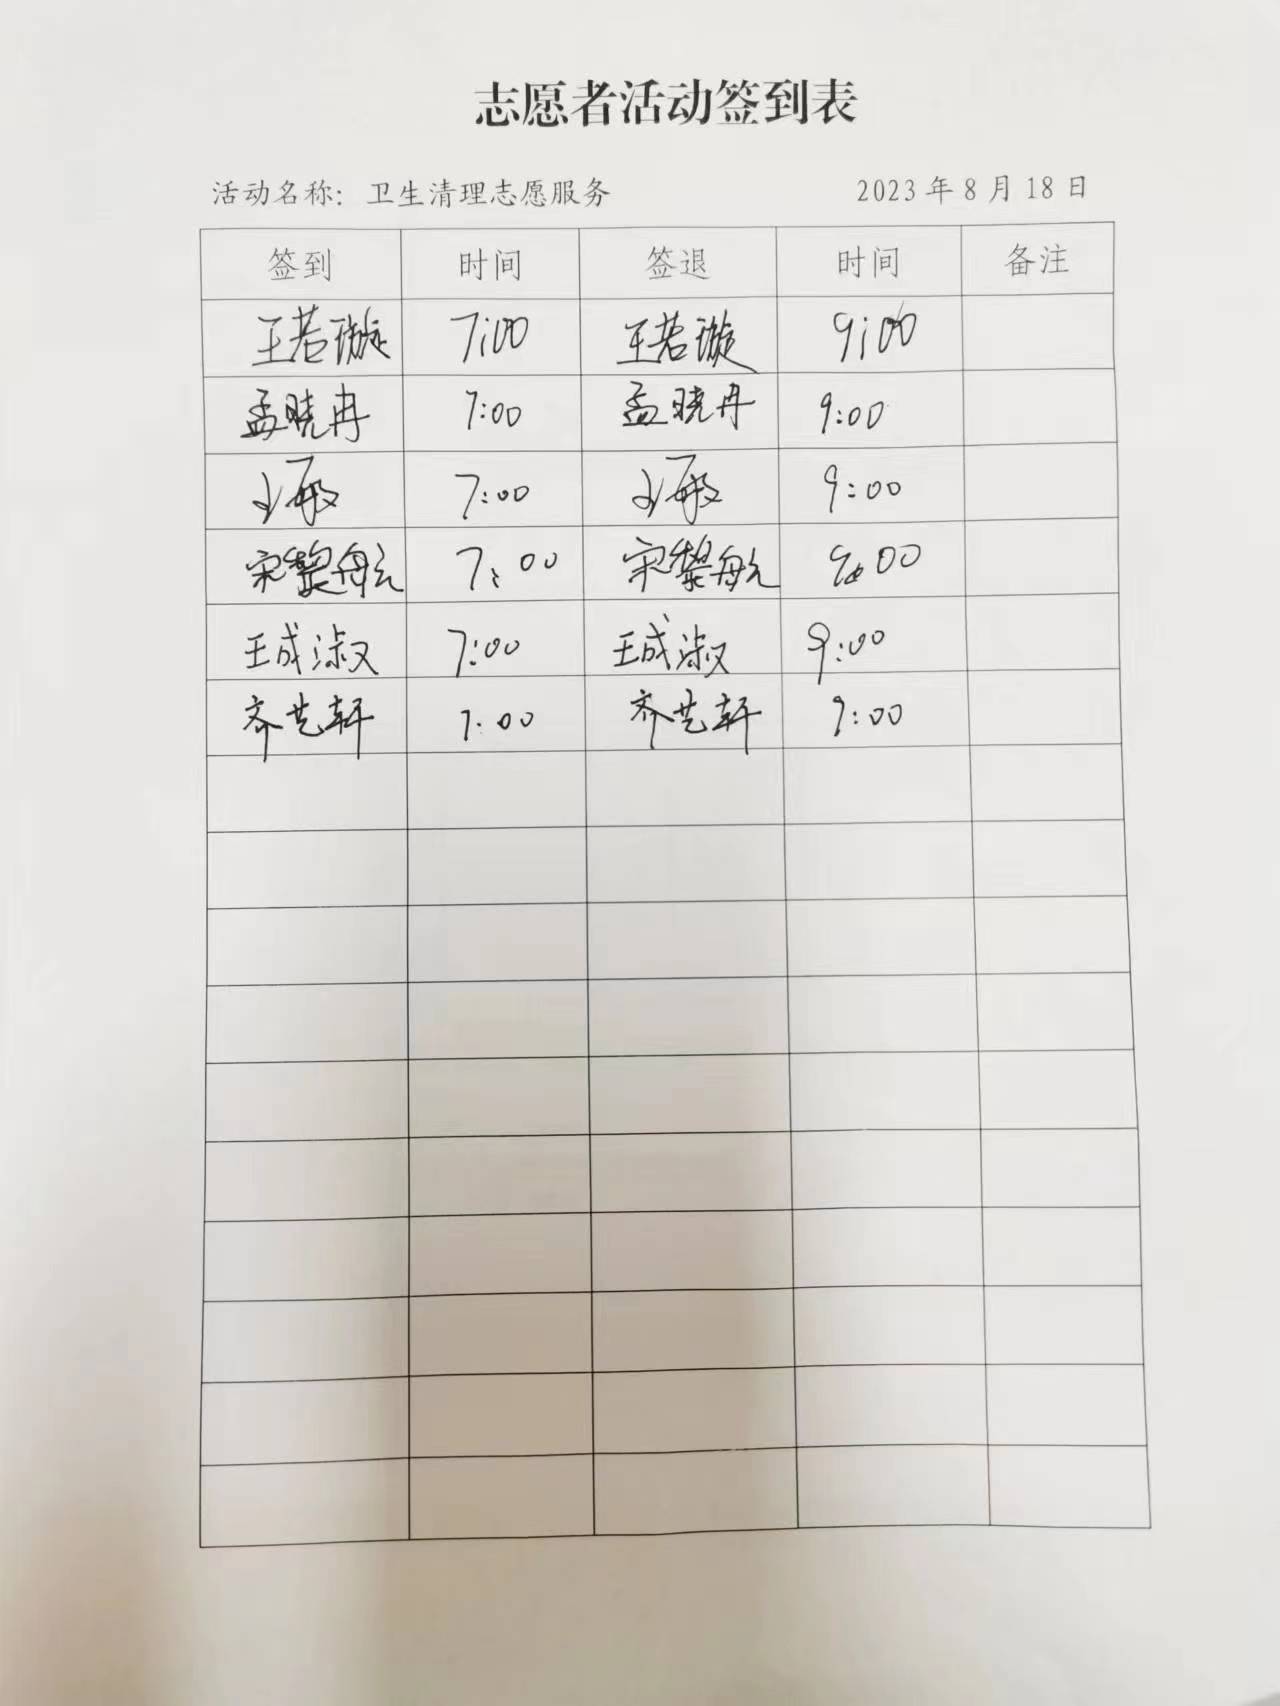 志愿者活动签到表
活动名称：卫生清理志愿服务 2023年8月18日
签到 时间 签退 时间 备注
王若璇 7:00 王若璇 9:00
孟晓冉 7:00 孟晓冉 9:00
王敏 7:00 王敏 9:00
宋黎航 7:00 宋黎航 9:00
王成淑 7:00 王成淑 9:00
齐艺轩 7:00 齐艺轩 9:00